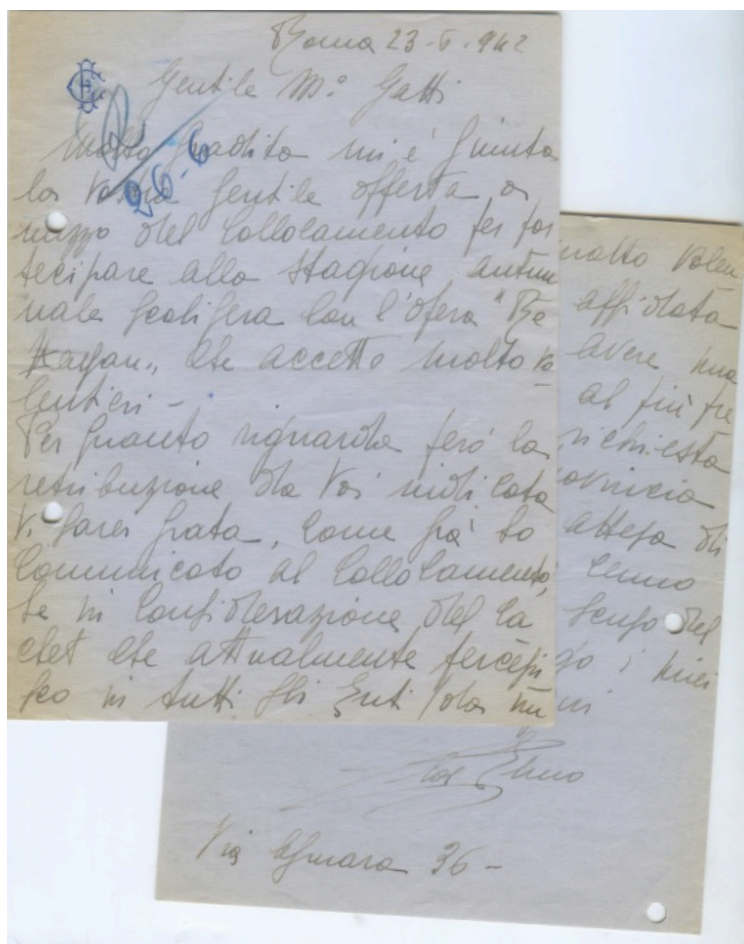 Roma 23-6-942
Gentile M.o Gatti
Molto gradita mi è giunta
la Vostra gentile offerta a
mezzo del Collocamento per par
tecipare alla Stagione autun
nale scaligera con l'opera "Re
Hassan„ che accetto molto vo
lentieri -
Per quanto riguarda però la
retribuzione da Voi indicata
Vi sarei grata, come già ho
comunicato al Collocamento,
se in considerazione del ca
chet che attualmente percepi
sco in tutti gli Enti
26-6
molto volen
affidata
avere una
al più pre
richiesta
provincia
attesa di
cenno
sensi del
miei
Elmo
Via 36-